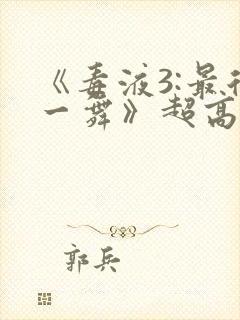 《毒液3:最
一舞》超高
郭兵